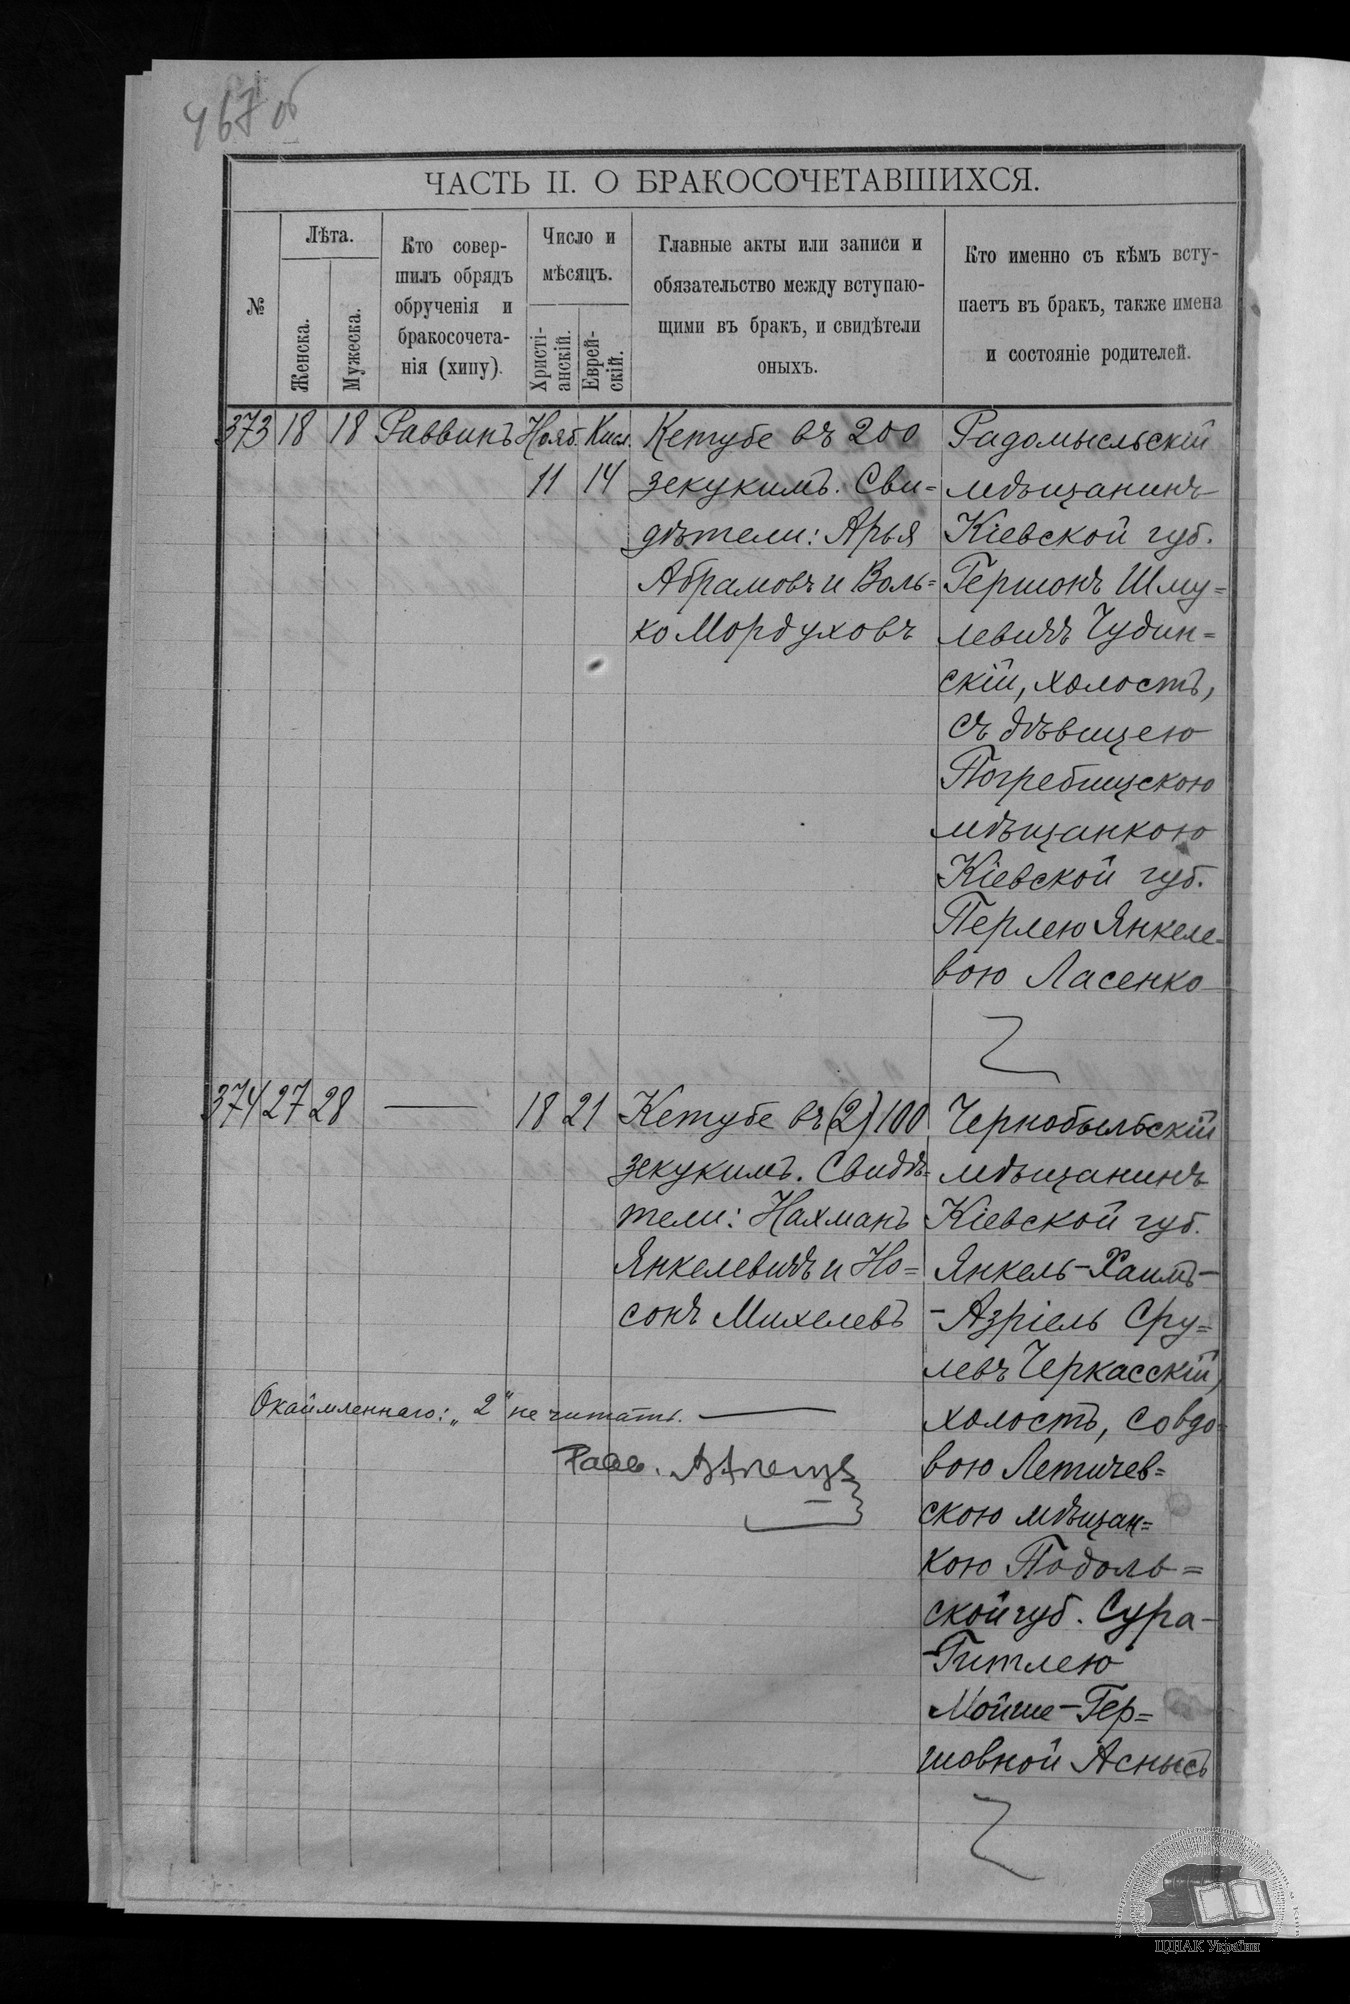 467 об
ЧАСТЬ II. О БРАКОСОЧЕТАВШИХСЯ.
№
Лѣта.
Женска.
Мужеска.
Кто совер-
шилъ обрядъ
обрученія и
бракосочета-
нія (хипу).
Число и
мѣсяцъ.
Христі-
анскій.
Еврей-
скій.
Главные акты или записи и
обязательство между вступаю-
щими въ бракъ, и свидѣтели
оныхъ.
Кто именно съ кѣмъ всту-
паетъ въ бракъ, также имена
и состояніе родителей.
373 18 18 Раввинъ Нояб. Кисл.
11 14
Кетубе въ 200
зекукимъ. Сви=
дѣтели: Арья
Абрамовъ и Воль=
ко Мордуховъ
Радомысльскій
мѣщанинъ
Кіевской губ.
Гершонъ Шму=
левичъ Чудин=
скій, холостъ,
съ дѣвицею
Погребищскою
мѣщанкою
Кіевской губ.
Перлею Янкеле-
вою Ласенко
374 27 28 — 18 21
Кетубе въ (2) 100
зекукимъ. Свидѣ=
тели: Нахманъ
Янкелевичъ и Но=
сонъ Михелевъ
Чернобыльскій
мѣщанинъ
Кіевской губ.
Янкель-Хаимъ-
-Азріель Сру=
левъ Черкасскій,
холостъ, со вдо-
вою Летичев=
скою мѣщан=
кою Подоль=
ской губ. Сура-
-Гитлею
Мойше-Гер=
шовной Аснысъ
Окаймленнаго: „2" не читать. —
Равв.
ЦДІАК України